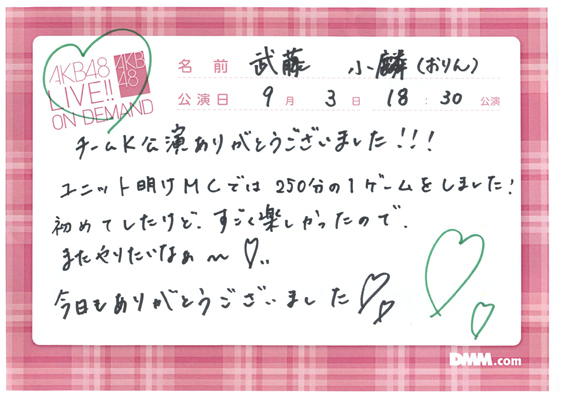 AKB48
LIVE!!
ON DEMAND
AKB
48
名前 武藤 小麟(おりん)
公演日 9月 3日 18:30 公演
チームK公演ありがとうございました!!!
ユニット明けMCでは250分の1ゲームをしました!
初めてしたけど、すごく楽しかったので、
またやりたいなぁ〜♡..
今日もありがとうございました♡♡
DMM.com